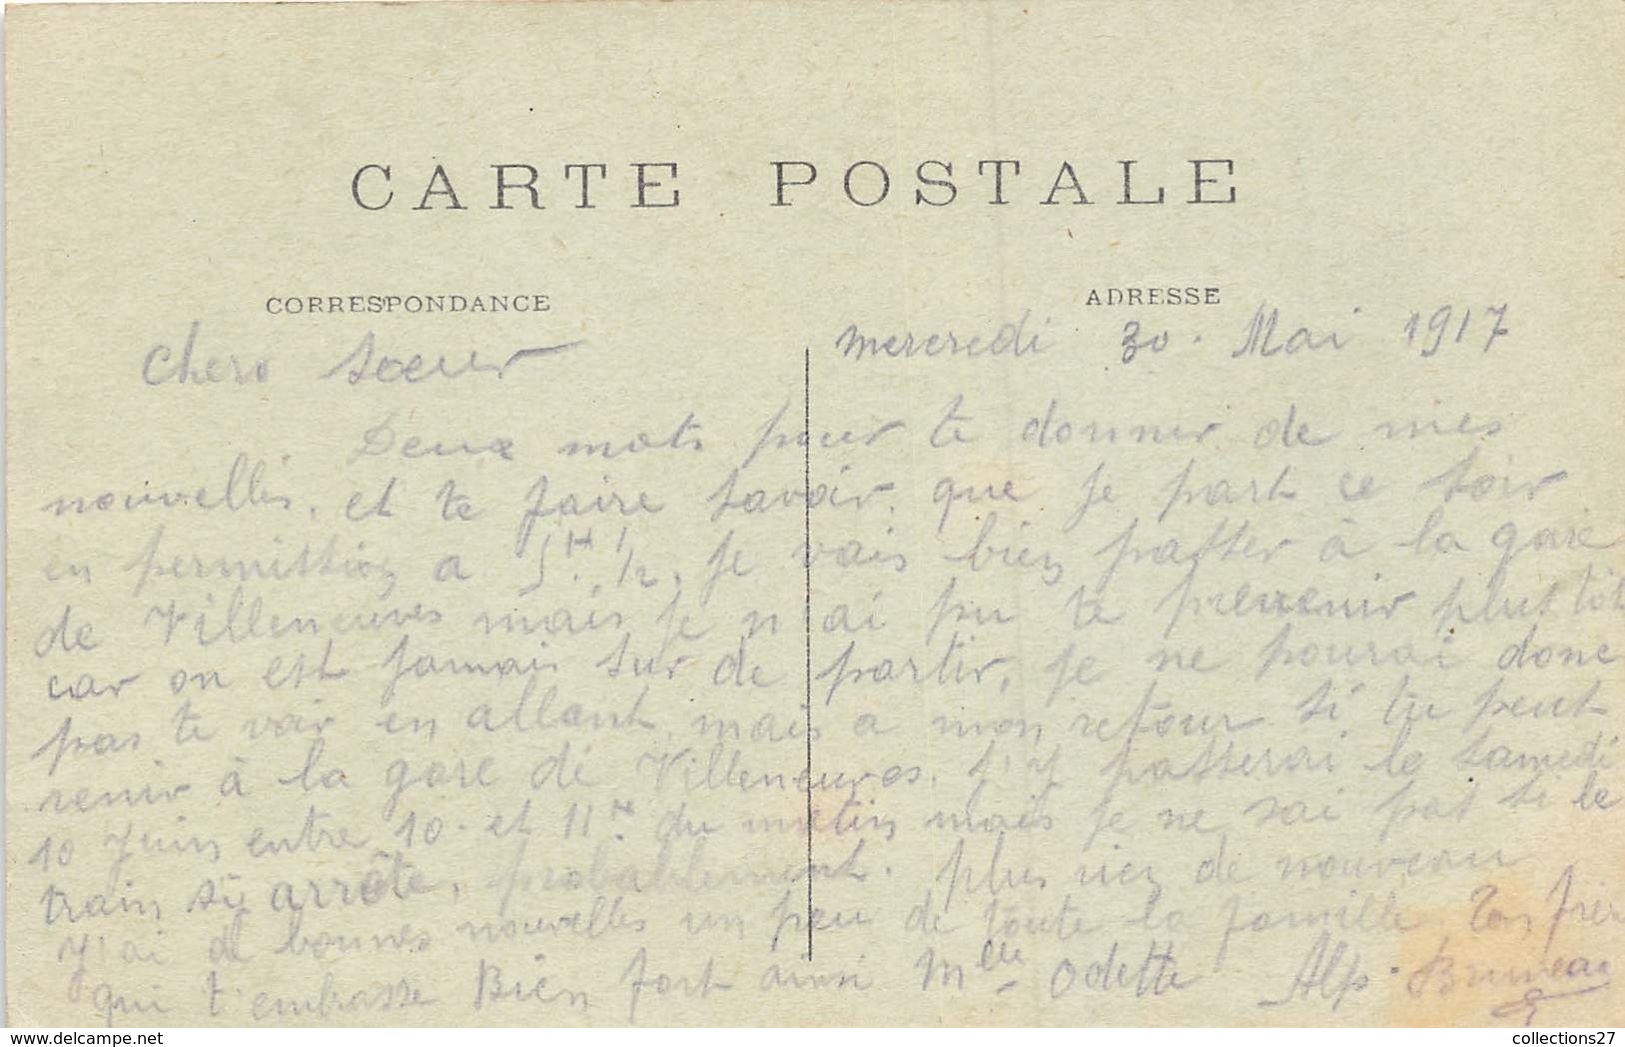 CARTE POSTALE
CORRESPONDANCE
ADRESSE
Mercredi 30. Mai 1917
Chere Soeur
Deux mots pour te donner de mes
nouvelles. et te faire savoir. que je part ce soir
en permission a 5H. 1/2, je vais bien passer à la gare
de Villeneuves mais je n'ai pu te prevenir plus tôt
car on est jamais sur de partir, je ne pourai donc
pas te voir en allant, mais a mon retour si tu peut
venir à la gare de Villeneuves. j'y passerai le samedi
10 Juin entre 10. et 11H. du matin mais je ne sai pas si le
train s'y arrête, probablement. plus rien de nouveau
J'ai de bonnes nouvelles un peu de toute la famille. Ton frère
qui t'embrasse Bien fort ainsi Mlle Odette Alp. Bruneau
collections27